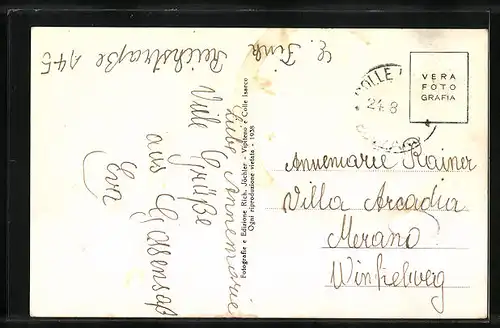 E. Fink
Reichstraße 145
Liebe Annemarie
Viele Grüße
aus Gossensaß
Eva
Fotografia e Edizione Rich. Jöchler - Vipiteno / Colle Isarco
Ogni riproduzione vietata - 1938
COLLE
24.8
VERA
FOTO
GRAFIA
Annemarie Rainer
Villa Arcadia
Merano
Winkelweg